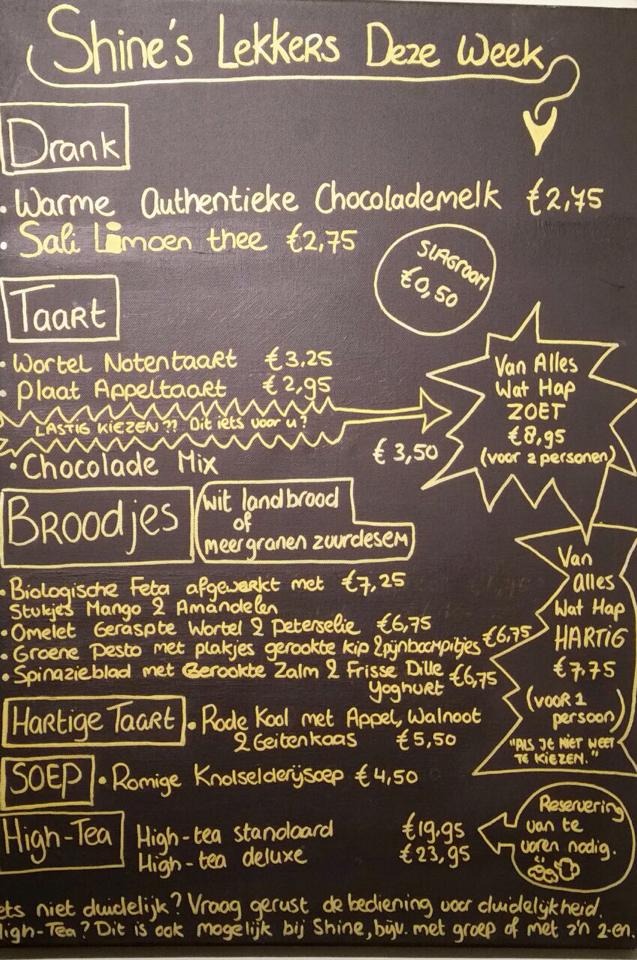 Shine's Lekkers Deze Week
Drank
• Warme Authentieke Chocolademelk €2,75
• Sali Limoen thee €2,75
SLAGROOM
€0,50
Taart
• Wortel Notentaart €3.25
• Plaat Appeltaart €2,95
LASTIG KIEZEN?? Dit iets voor u?
• Chocolade Mix €3,50
Van Alles
Wat Hap
ZOET
€8,95
(voor 2 personen)
Broodjes
wit landbrood
of
meergranen zuurdesem
• Biologische Feta afgewerkt met €7,25
Stukjes Mango & Amandelen
• Omelet Geraspte Wortel & Peterselie €6,75
• Groene Pesto met plakjes gerookte kip & pijnboompitjes €6,75
• Spinazieblad met Gerookte Zalm & Frisse Dille
Yoghurt €6,75
Van
Alles
Wat Hap
HARTIG
€7,75
(voor 1
persoon)
"ALS JE NIET WEET
TE KIEZEN."
Hartige Taart • Rode Kool met Appel, Walnoot
& Geitenkaas €5,50
SOEP • Romige Knolselderijsoep €4,50
High-Tea
High-tea standaard €19,95
High-tea deluxe €23,95
Reservering
van te
voren nodig.
iets niet duidelijk? Vraag gerust de bediening voor duidelijkheid.
High-Tea? Dit is ook mogelijk bij Shine, bijv. met groep of met z'n 2-en.